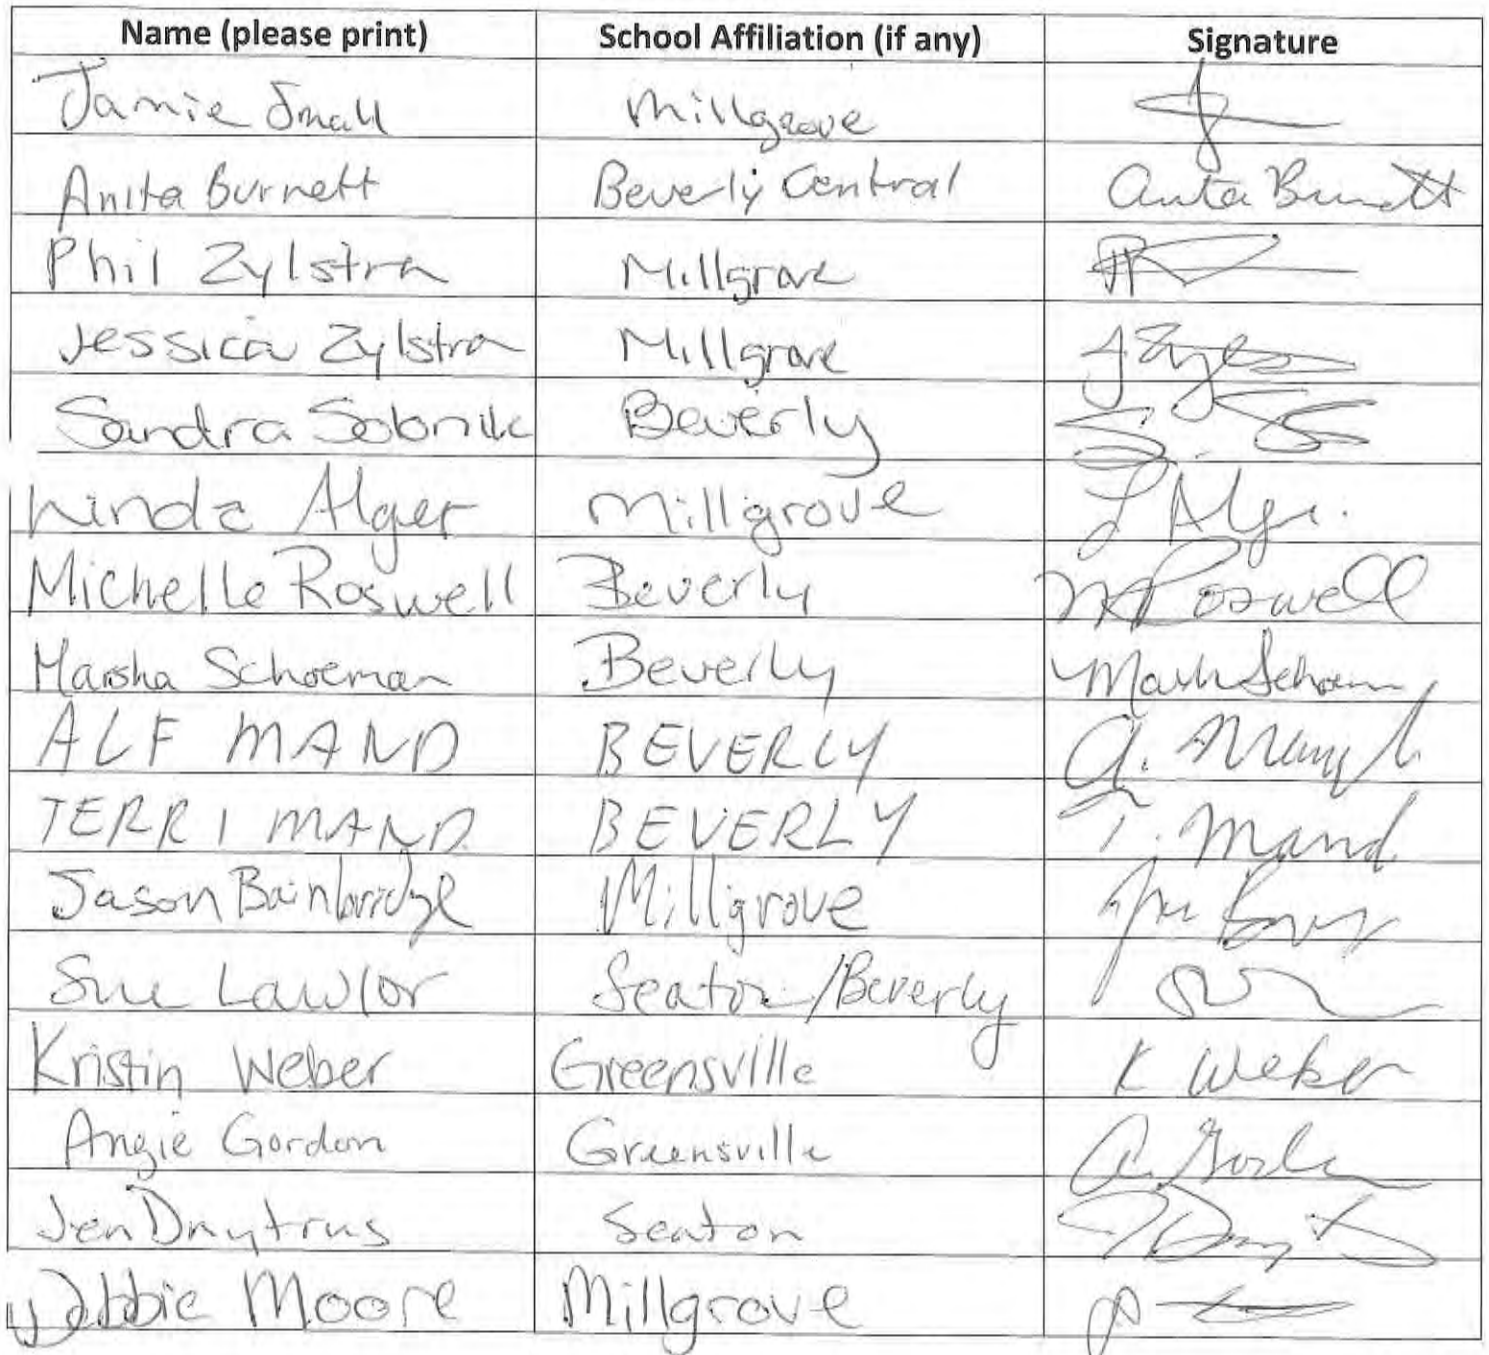 Name (please print) School Affiliation (if any) Signature
Jamie Small Millgrove
Anita Burnett Beverly Central Anita Burnett
Phil Zylstra Millgrove
Jessica Zylstra Millgrove
Sandra Sobnik Beverly
Linda Alger Millgrove L Alger
Michelle Roswell Beverly M Roswell
Marsha Schoeman Beverly
ALF MAND BEVERLY A.
TERRI MAND BEVERLY T. Mand
Jason Bainbridge Millgrove
Sue Lawlor Seaton/Beverly
Kristin Weber Greensville K Weber
Angie Gordon Greensville
Jen Dmytrus Seaton
Debbie Moore Millgrove